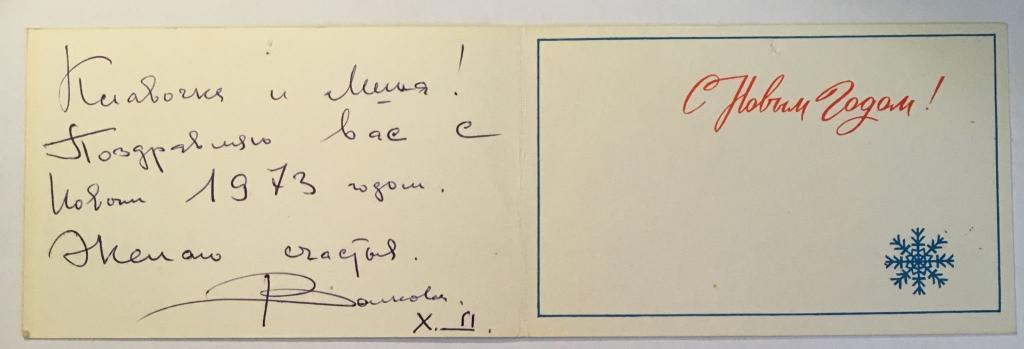 Клавочка и Миша!
Поздравляю вас с
Новым 1973 годом.
Желаю счастья.
С Новым Годом!